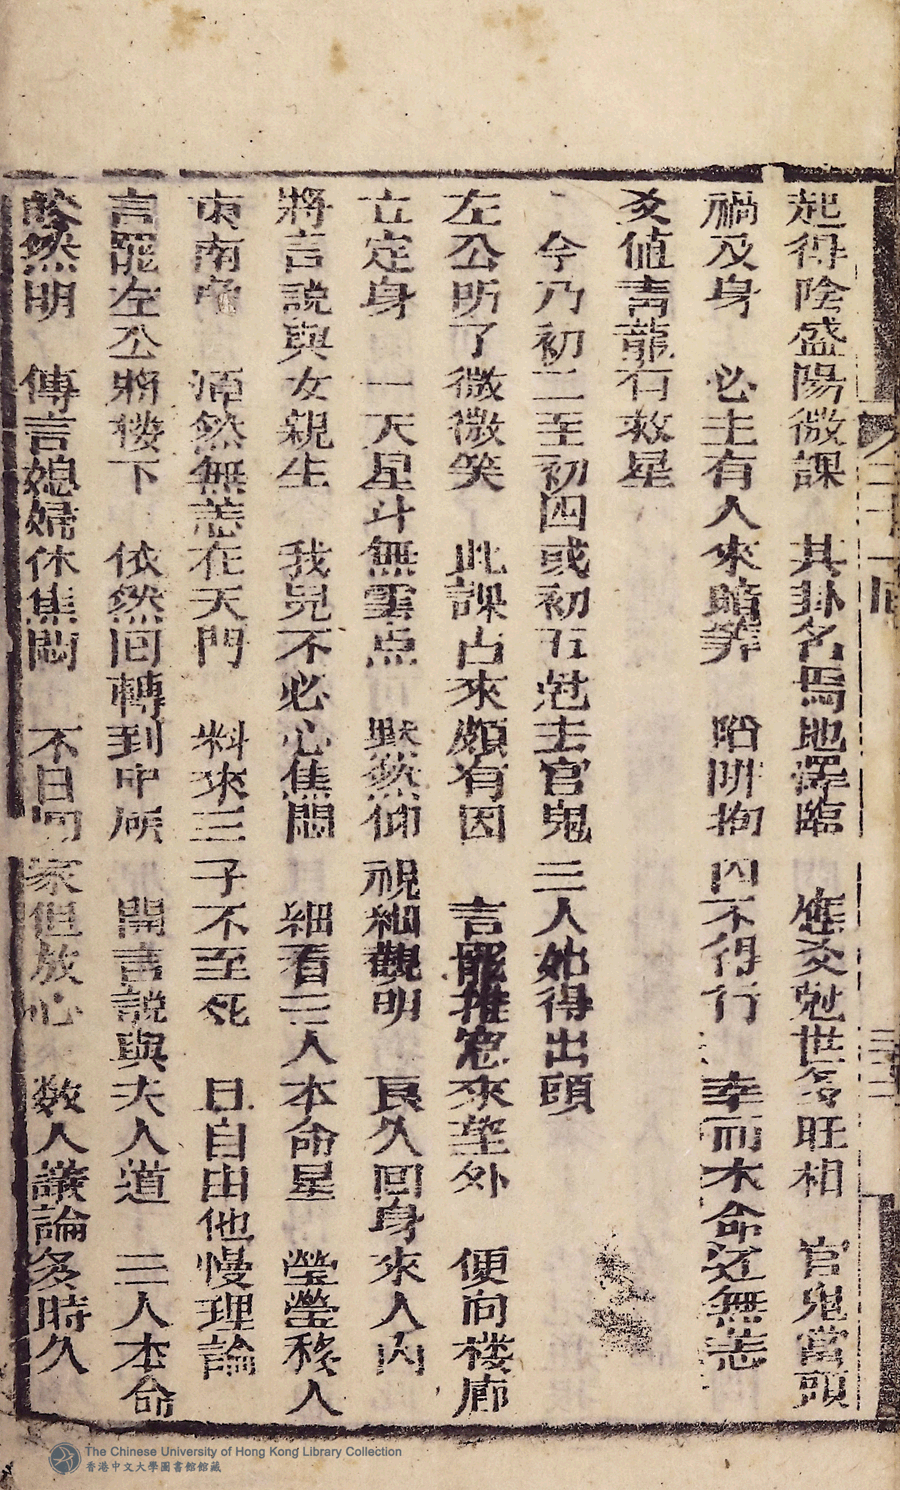 起得陰盛陽微課　其卦名爲地澤臨　應爻尅世多旺相　官鬼當頭
禍及身　必主有人來暗筭　陷阱拘囚不得行　幸而木命还無恙
爻值青龍有救星
今乃初二至初四或初五尅去官鬼三人始得出頭
左公听了微微笑　此課占來頗有因　言罷推窓來望外　便向楼廊
立定身　一天星斗無雲点　默然仰視細觀明　良久回身來入內
將言說與女親生　我兒不必心焦悶　細看三人本命星　瑩瑩移入
東南　　洒然無恙在天門　料來三子不至死　日自由他慢理論
言罷左公將楼下　依然回轉到中所　開言說與夫人道　三人本命
然明　傳言媳婦休焦悶　不日回家但放心　数人議論多時久
三十一回
The Chinese University of Hong Kong Library Collection
香港中文大學圖書館館藏